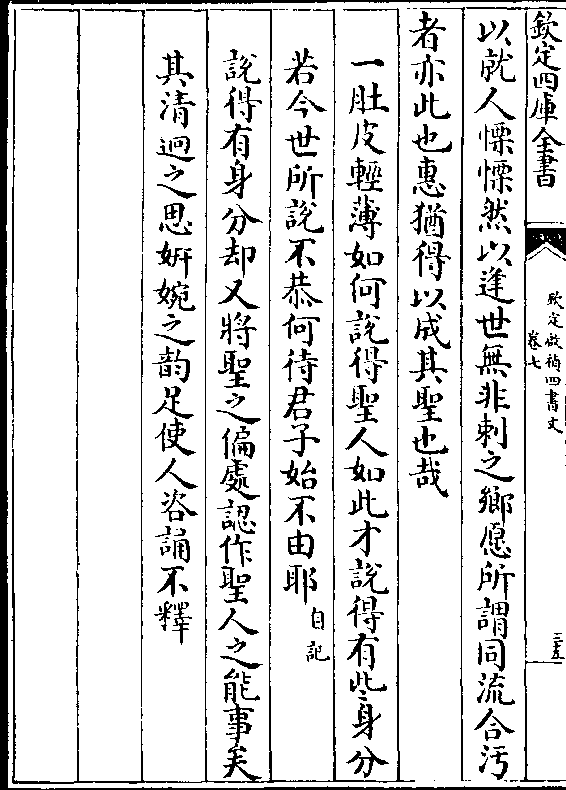 欽定四庫全書
欽定啟禎四書文
卷七
三五
以就人慄慄然以逢世無非刺之鄉愿所謂同流合汚
者亦此也惠猶得以成其聖也哉
一肚皮輕薄如何說得聖人如此才說得有些身分
若今世所說不恭何待君子始不由耶自記
說得有身分却又將聖之偏處認作聖人之能事矣
其清迥之思妍婉之韵足使人咨誦不釋